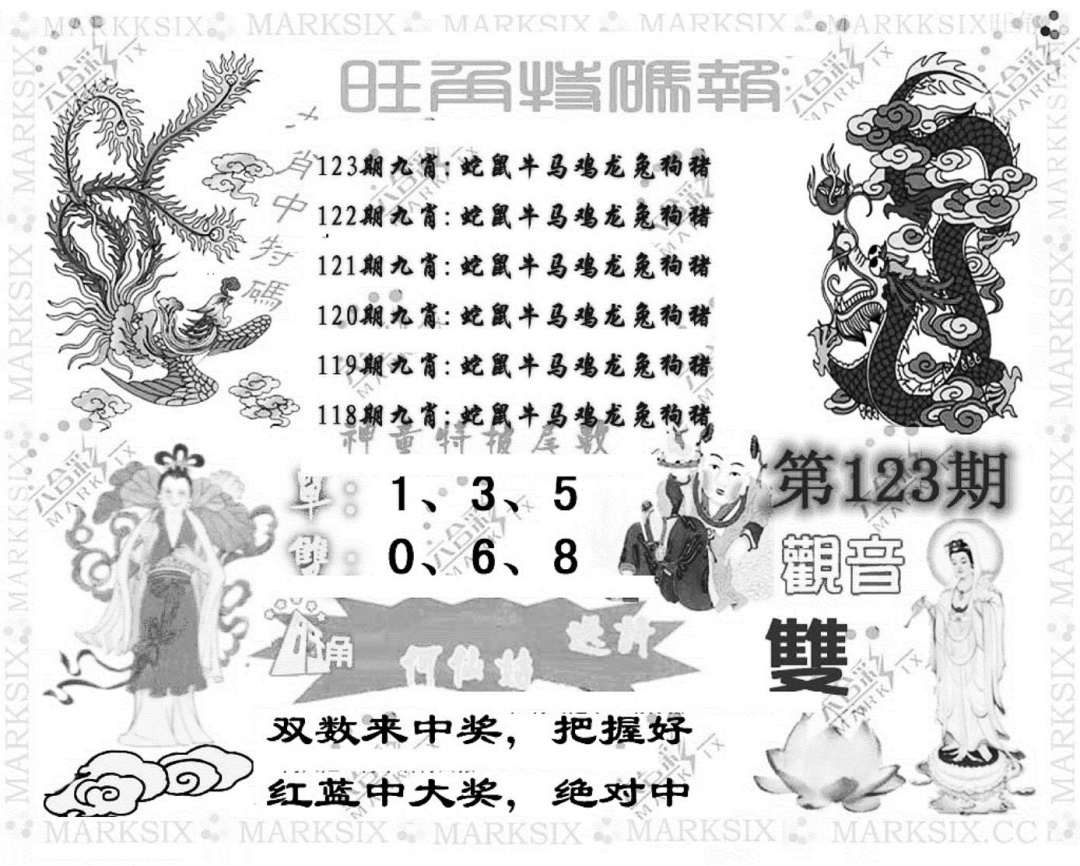 MARKSIX MARKSIX MARKSIX MARKSIX MARKKSIX
旺角特碼報
九肖中特碼
123期九肖:蛇鼠牛马鸡龙兔狗猪
122期九肖:蛇鼠牛马鸡龙兔狗猪
121期九肖:蛇鼠牛马鸡龙兔狗猪
120期九肖:蛇鼠牛马鸡龙兔狗猪
119期九肖:蛇鼠牛马鸡龙兔狗猪
118期九肖:蛇鼠牛马鸡龙兔狗猪
神童特报尾数
單: 1、3、5
雙: 0、6、8
第123期
觀音
雙
旺角
何仙姑
双数来中奖，把握好
红蓝中大奖，绝对中
MARKSIX MARKSIX MARKSIX MARKSIX MARKSIX.CC